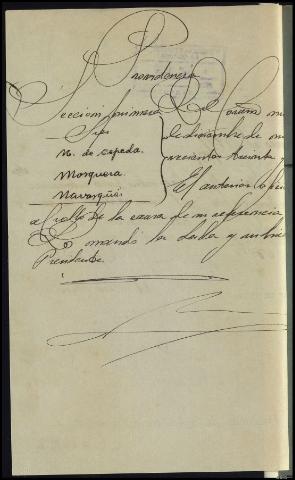 Providencia
Sección primera
Sres
M. de Cepeda.
Mosquera
Navarqués
La Coruña
de diciembre de mi
vecientos treinta y
El anterior
a rollo de la causa de su referencia
Lo mandó la Sala y
Presidente